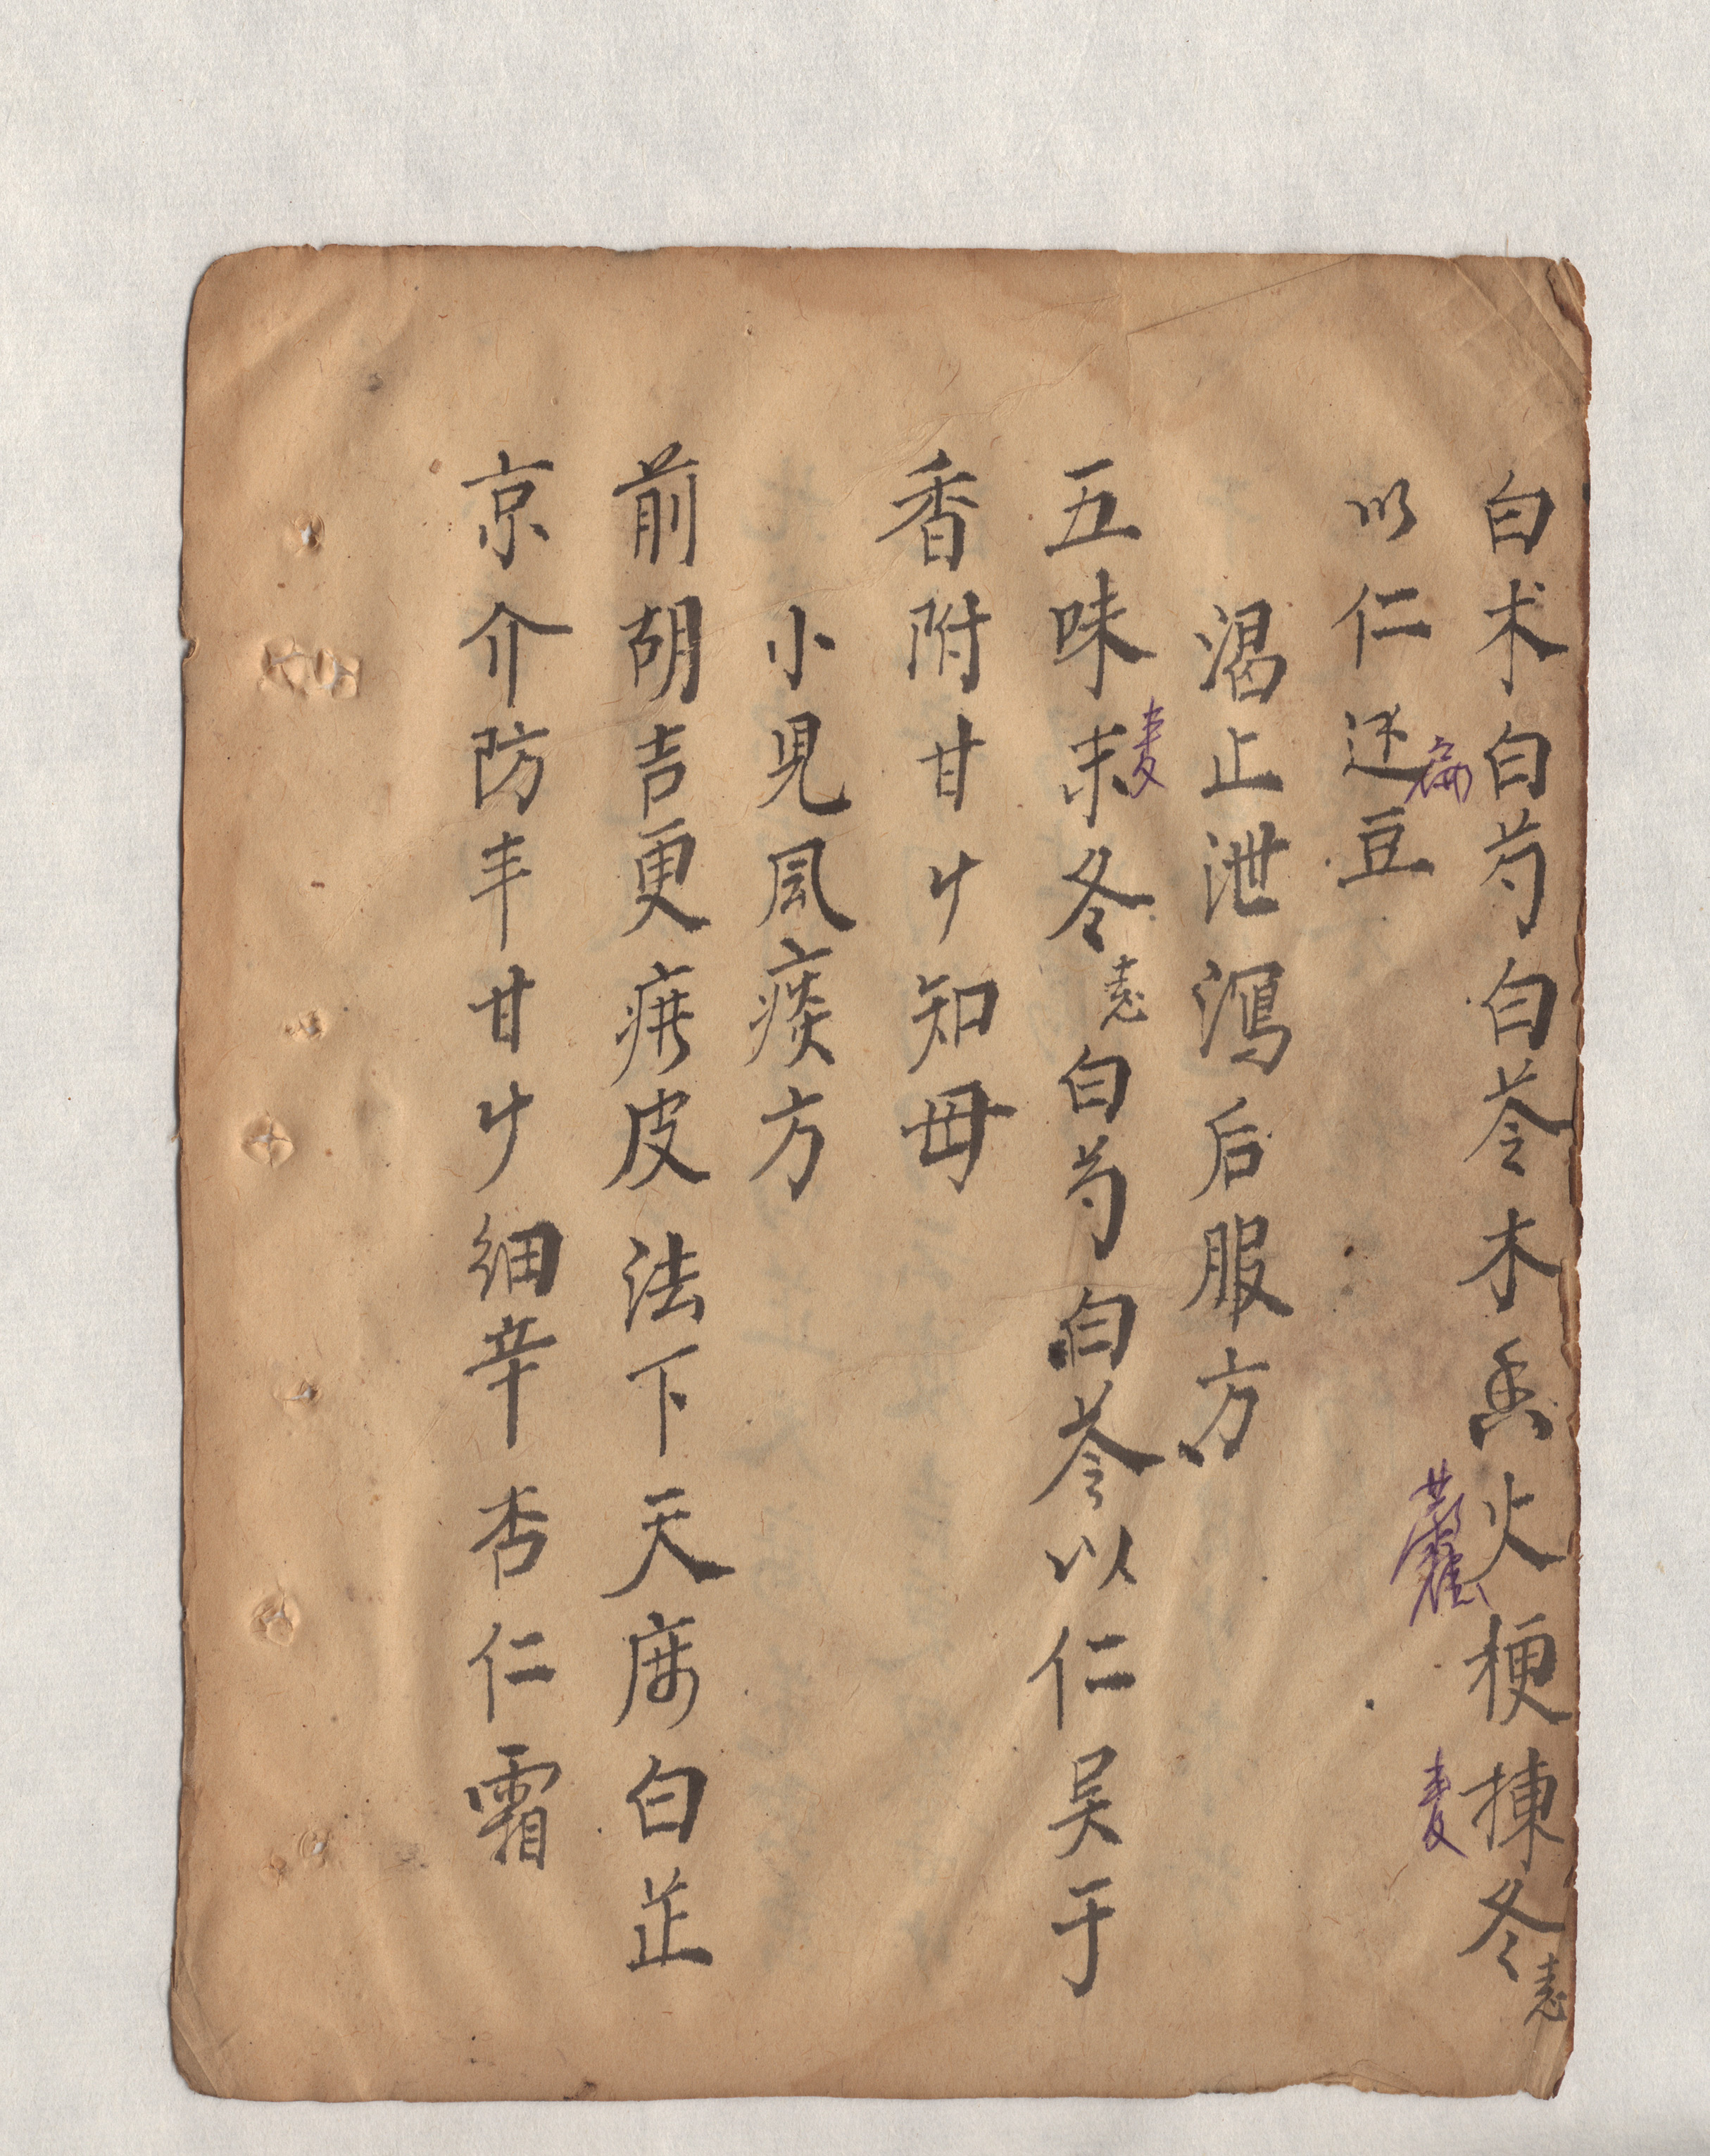 白术白芍白苓木香火梗揀冬
以仁还豆
渴止泄瀉后服方
五味末冬志白芍白苓以仁吴于
香附甘廾知毋
小児風痰方
前胡吉更病皮法下天麻白芷
京介防丰甘廾細辛杏仁霜
扁
麦
麦